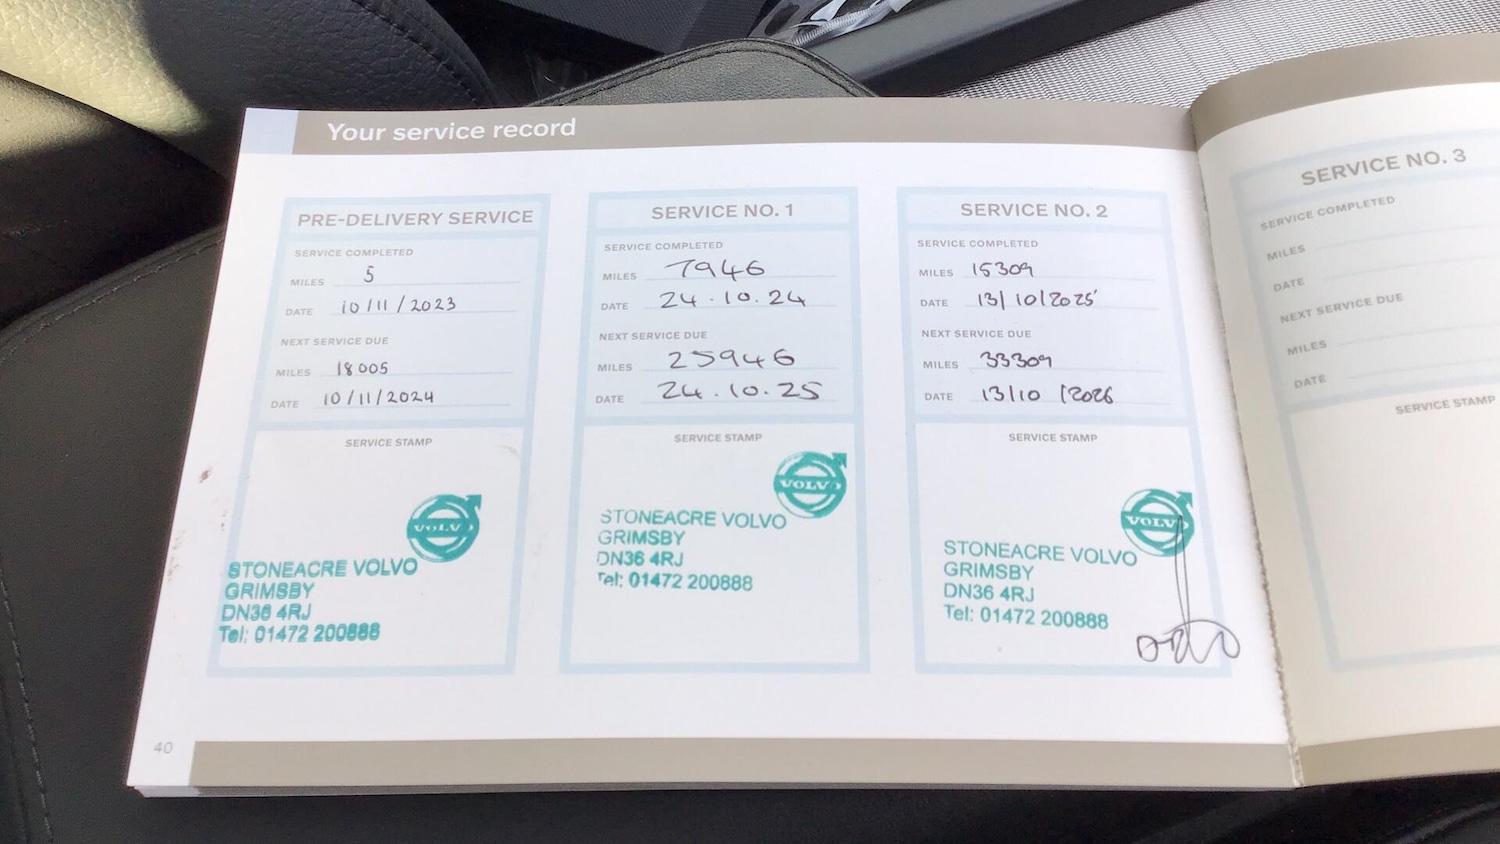 Your service record
PRE-DELIVERY SERVICE
SERVICE COMPLETED
MILES 5
DATE 10/11/2023
NEXT SERVICE DUE
MILES 18005
DATE 10/11/2024
SERVICE STAMP
VOLVO
STONEACRE VOLVO
GRIMSBY
DN36 4RJ
Tel: 01472 200888
SERVICE NO. 1
SERVICE COMPLETED
MILES 7946
DATE 24.10.24
NEXT SERVICE DUE
MILES 25946
DATE 24.10.25
SERVICE STAMP
VOLVO
STONEACRE VOLVO
GRIMSBY
DN36 4RJ
Tel: 01472 200888
SERVICE NO. 2
SERVICE COMPLETED
MILES 15309
DATE 13/10/2025
NEXT SERVICE DUE
MILES 33309
DATE 13/10/2026
SERVICE STAMP
VOLVO
STONEACRE VOLVO
GRIMSBY
DN36 4RJ
Tel: 01472 200888
40
SERVICE NO. 3
SERVICE COMPLETED
MILES
DATE
NEXT SERVICE DUE
MILES
DATE
SERVICE STAMP